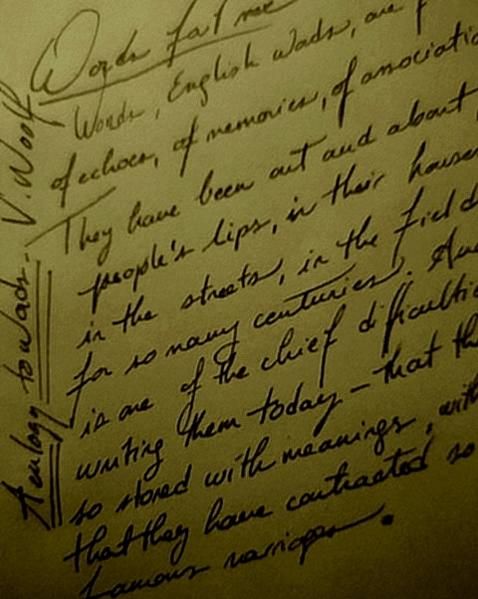 Words fail me
Words, English words, are f
of echoes, of memories, of associatio
They have been out and about,
people's lips, in their houses
in the streets, in the field
for so many centuries. And
is one of the chief difficultie
writing them today - that th
so stored with meanings, with
that they have contracted so
famous marriages.
A eulogy to words - V. Woolf